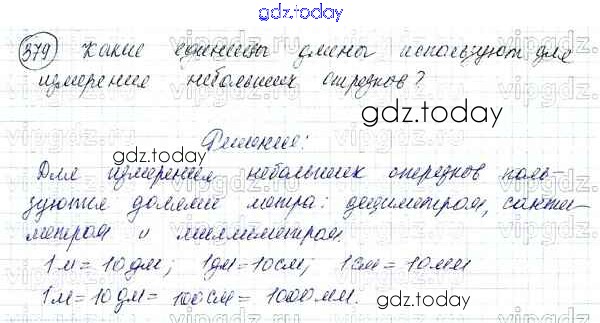 gdz.today
379 Какие единицы длины используют для
измерения небольших отрезков?
gdz.today
Решение:
gdz.today
Для измерения небольших отрезков поль-
зуются долями метра: дециметром, санти-
метром и миллиметром.
1м = 10дм; 1дм = 10см; 1см = 10мм
1м = 10дм = 100см = 1000мм.
gdz.today